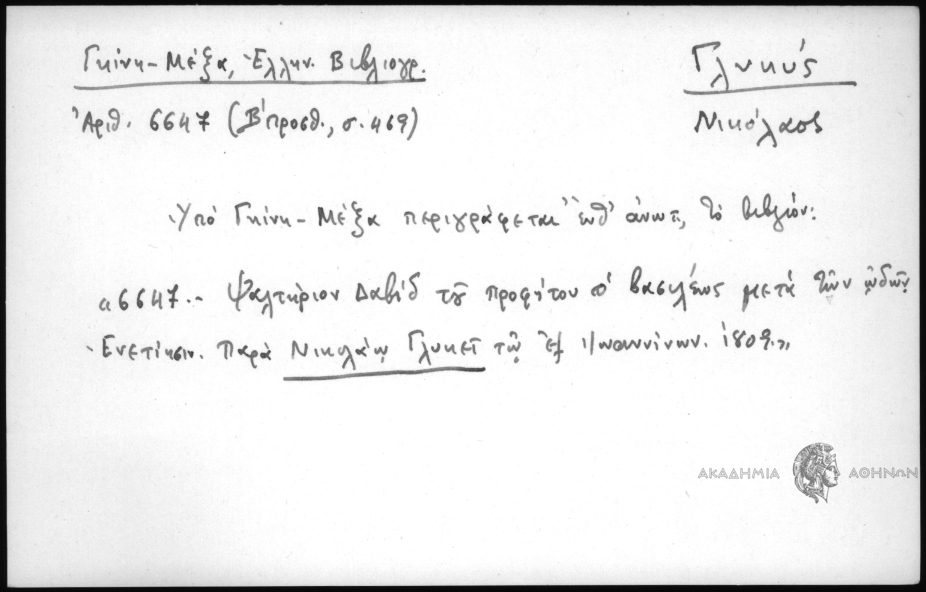 Γκίνη-Μέξα, Ἑλλην. Βιβλιογρ.
Γλυκύς
Ἀριθ. 6647 (Β΄ προσθ., σ. 469)
Νικόλαος
Ὑπό Γκίνη-Μέξα περιγράφεται ἔνθ' ἀνωτ, τὸ βιβλίον:
α6647.- Ψαλτήριον Δαβίδ τοῦ προφήτου & βασιλέως μετά τῶν ᾠδῶν
Ενετίησιν. Παρά Νικολάῳ Γλυκεῖ τῷ ἐξ Ἰωαννίνων. 1809.»
ΑΚΑΔΗΜΙΑ ΑΘΗΝΩΝ